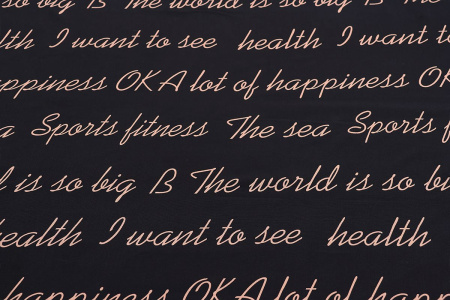 so big B The world is so big B The
lth I want to see health I want to
appiness OK A lot of happiness OK
a Sports fitness The sea Sports f
d is so big B The world is so bi
health I want to see health
happiness OK A lot of happ